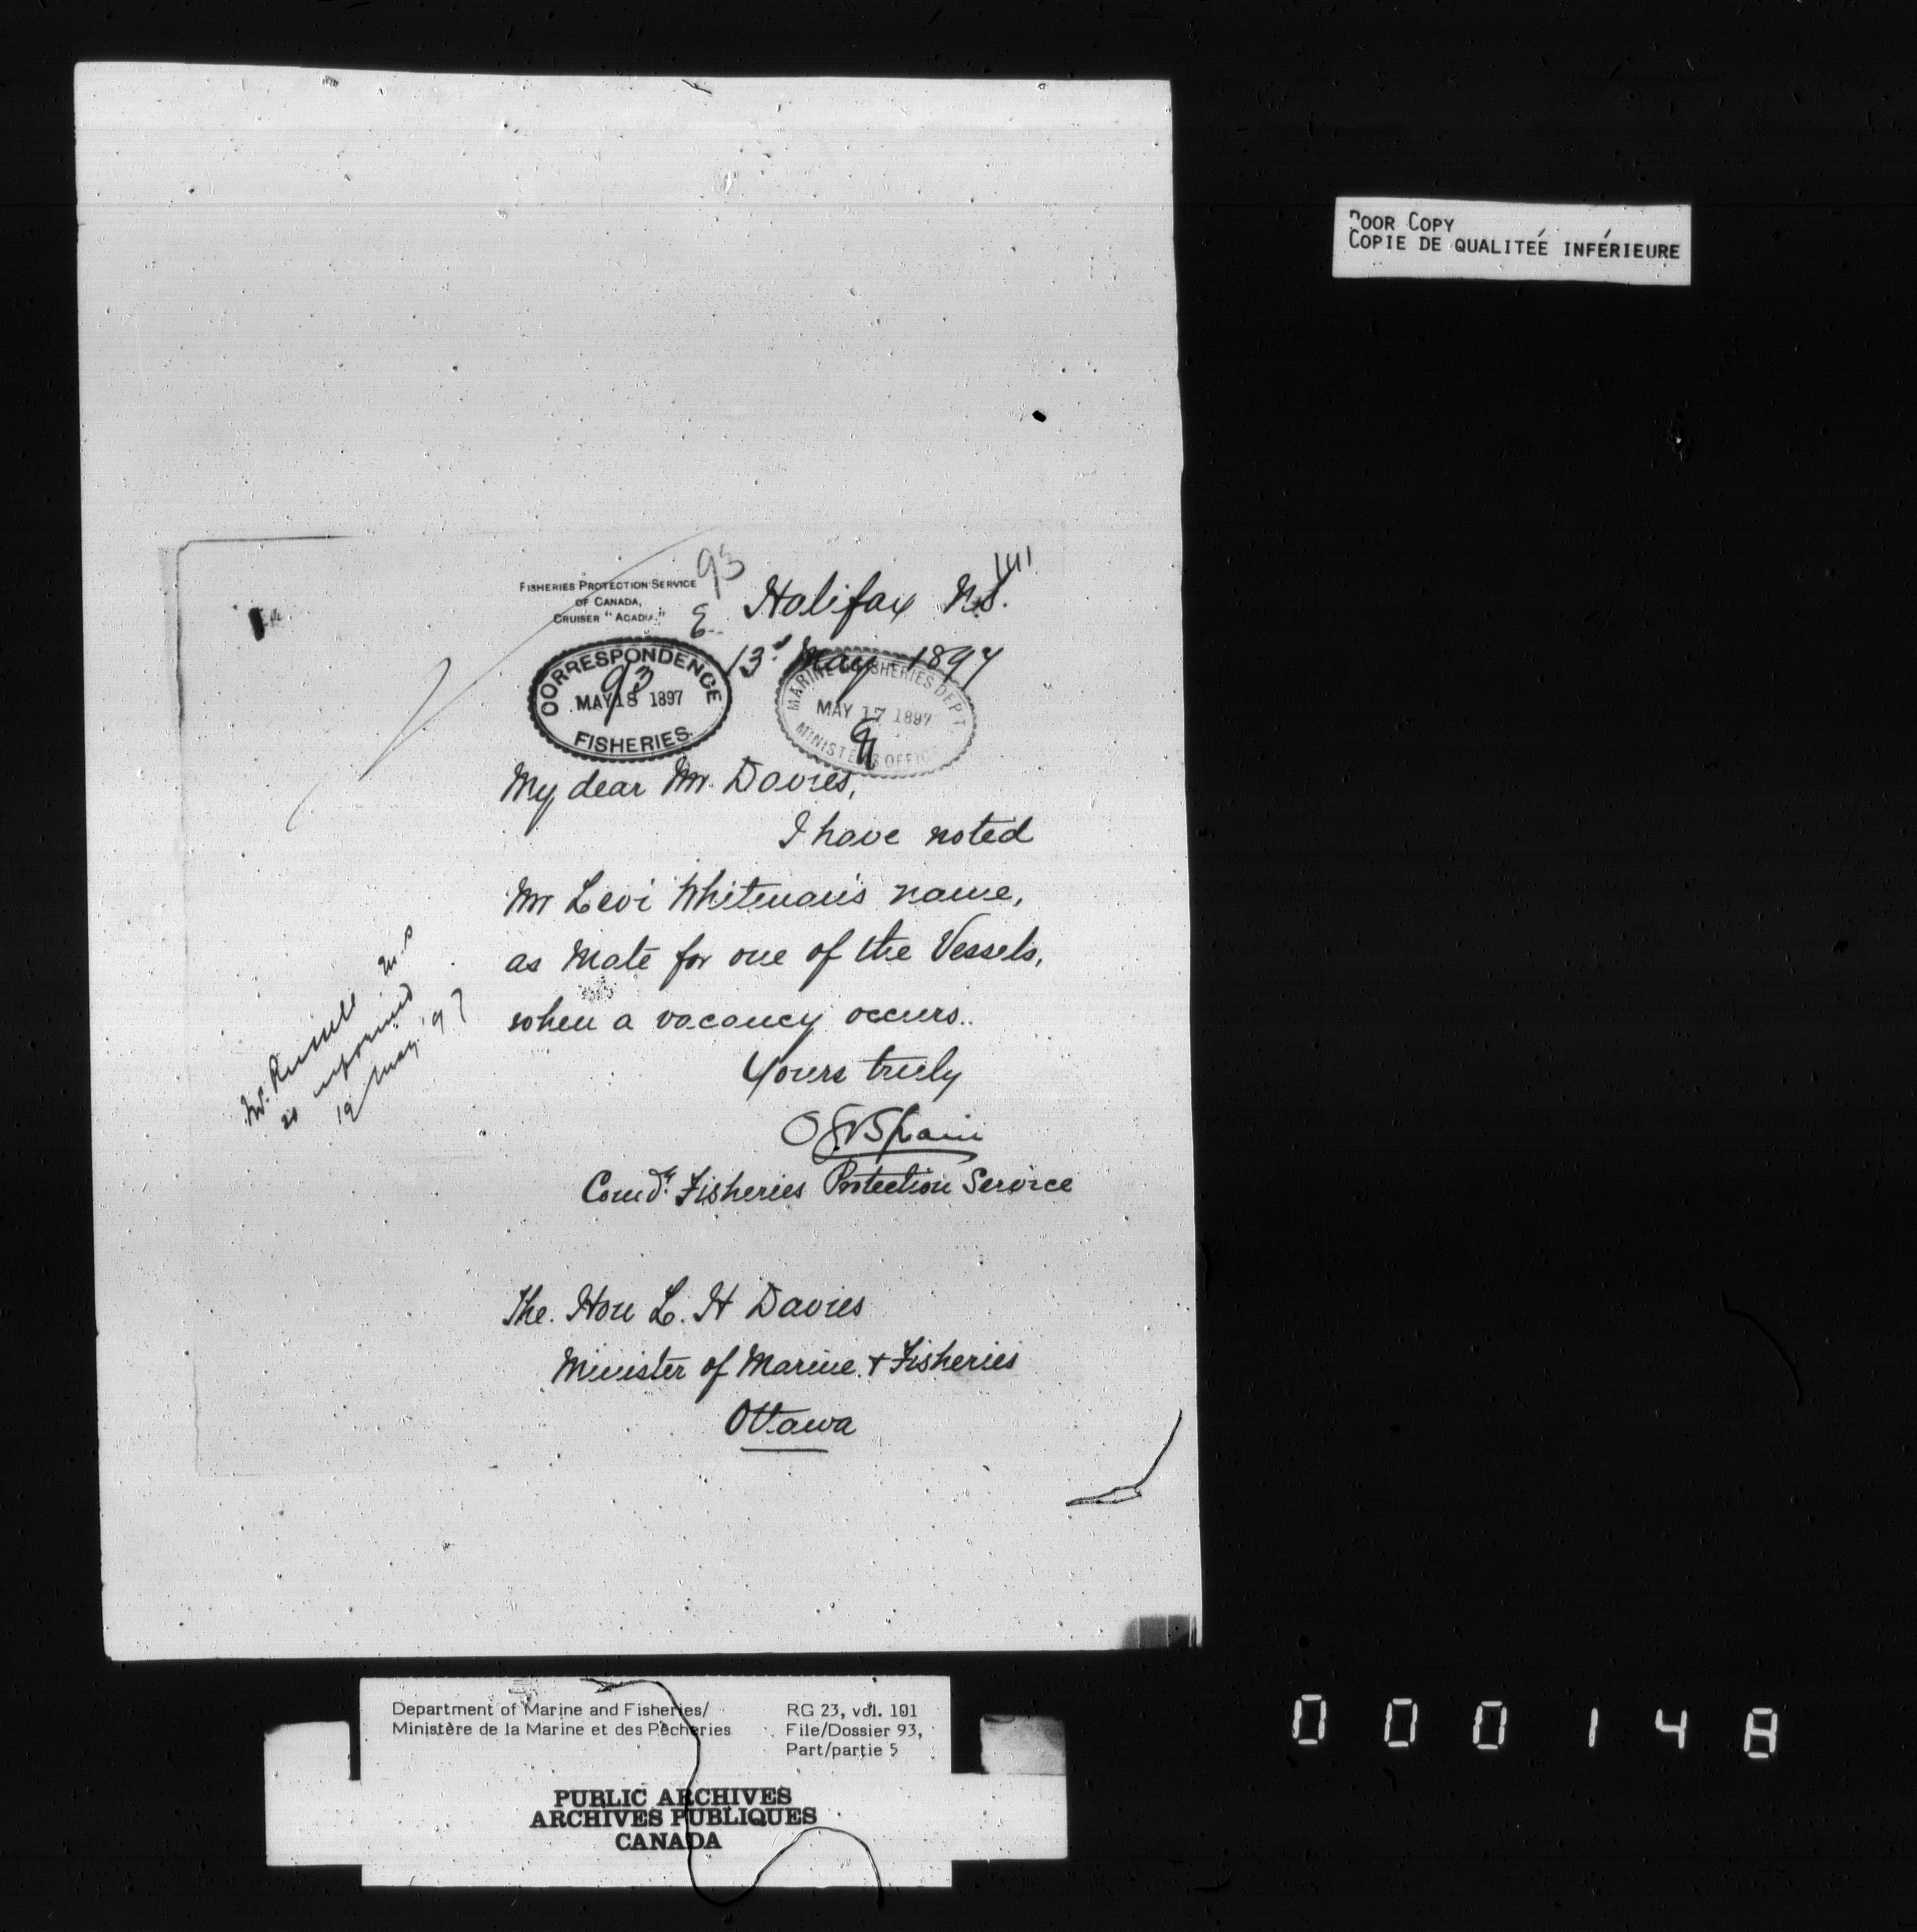 POOR COPY
COPIE DE QUALITEÉ INFÉRIEURE
93
141
FISHERIES PROTECTION SERVICE
OF CANADA,
CRUISER "ACADIA."
Halifax N.S.
13th May 1897
CORRESPONDENCE
93
MAY 18 1897
FISHERIES
MARINE & FISHERIES DEPT.
MAY 17 1897
MINISTERS OFFICE
My dear Mr. Davies,
I have noted
Mr Levi Whitman's name,
as Mate for one of the Vessels,
when a vacancy occurs.
Yours truly
O G V Spain
Comdr. Fisheries Protection Service
Mr. Russell M.P
is informed
19 May '97
The. Hon L. H Davies
Minister of Marine & Fisheries
Ottawa
Department of Marine and Fisheries/
Ministère de la Marine et des Pêcheries
RG 23, vol. 101
File/Dossier 93,
Part/partie 5
PUBLIC ARCHIVES
ARCHIVES PUBLIQUES
CANADA
000148